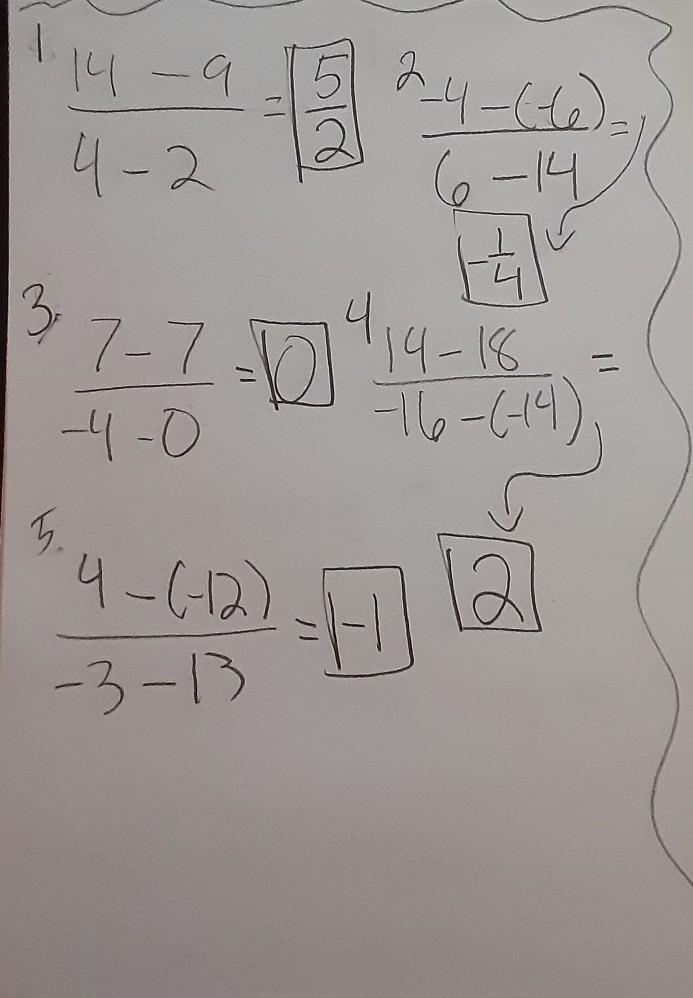 1. 14 - 9 / 4 - 2 = 5/2
2 -4 - (-6) / 6 - 14 = -1/4
3. 7 - 7 / -4 - 0 = 0
4 14 - 18 / -16 - (-14) = 2
5. 4 - (-12) / -3 - 13 = -1